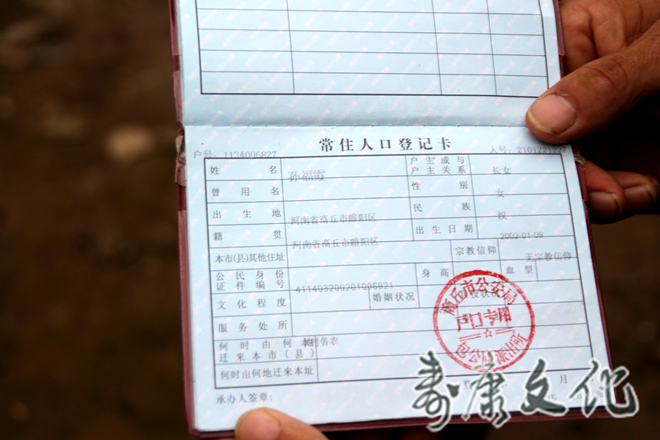 常住人口登记卡
户号: 1134006827 人号: 2101221
姓名 孙福霞 户主或与户主关系 长女
曾用名 性别 女
出生地 河南省商丘市睢阳区 民族 汉
籍贯 河南省商丘市睢阳区 出生日期 2002-01-09
本市(县)其他住址 宗教信仰 无宗教信仰
公民身份证件编号 身高 血型
文化程度 婚姻状况
服务处所
何时由何地迁来本市(县)
何时由何地迁来本址
承办人签章: 月
商丘市公安局
户口专用
寿康文化